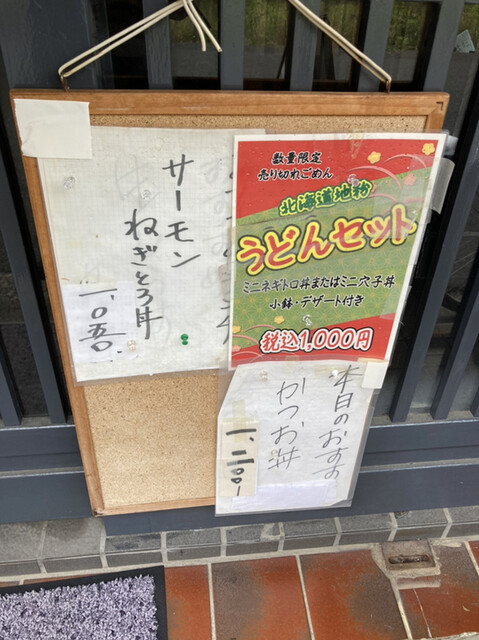 サーモン
ねぎとろ丼
一、〇五〇.
数量限定
売り切れごめん
北海道地粉
うどんセット
ミニネギトロ丼またはミニ穴子丼
小鉢・デザート付き
税込1,000円
本日のおすす
かつお丼
一、二〇〇-